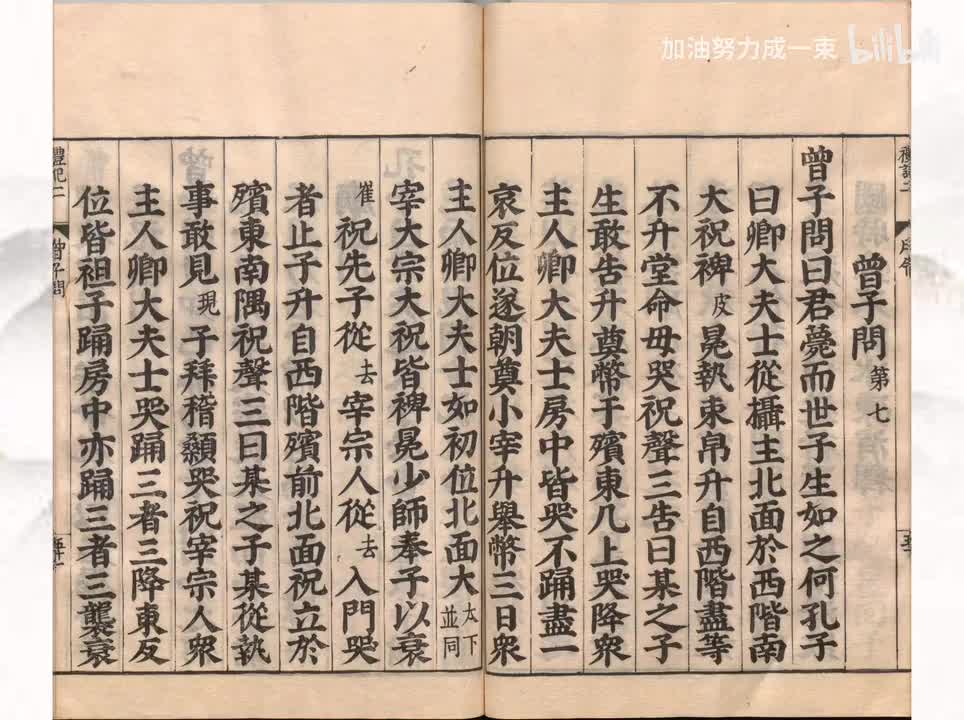 加油努力成一束 bilibili
曾子問 第七
曾子問曰君薨而世子生如之何孔子
曰卿大夫士從攝主北面於西階南
大祝裨皮冕執束帛升自西階盡等
不升堂命毋哭祝聲三告曰某之子
生敢告升奠幣于殯東几上哭降衆
主人卿大夫士房中皆哭不踊盡一
哀反位遂朝奠小宰升舉幣三日衆
主人卿大夫士如初位北面大太下並同
宰大宗大祝皆裨冕少師奉子以衰
崔祝先子從去宰宗人從去入門哭
者止子升自西階殯前北面祝立於
殯東南隅祝聲三曰某之子某從執
事敢見現子拜稽顙哭祝宰宗人衆
主人卿大夫士哭踊三者三降東反
位皆袒子踊房中亦踊三者三襲衰
禮記二 曾子問